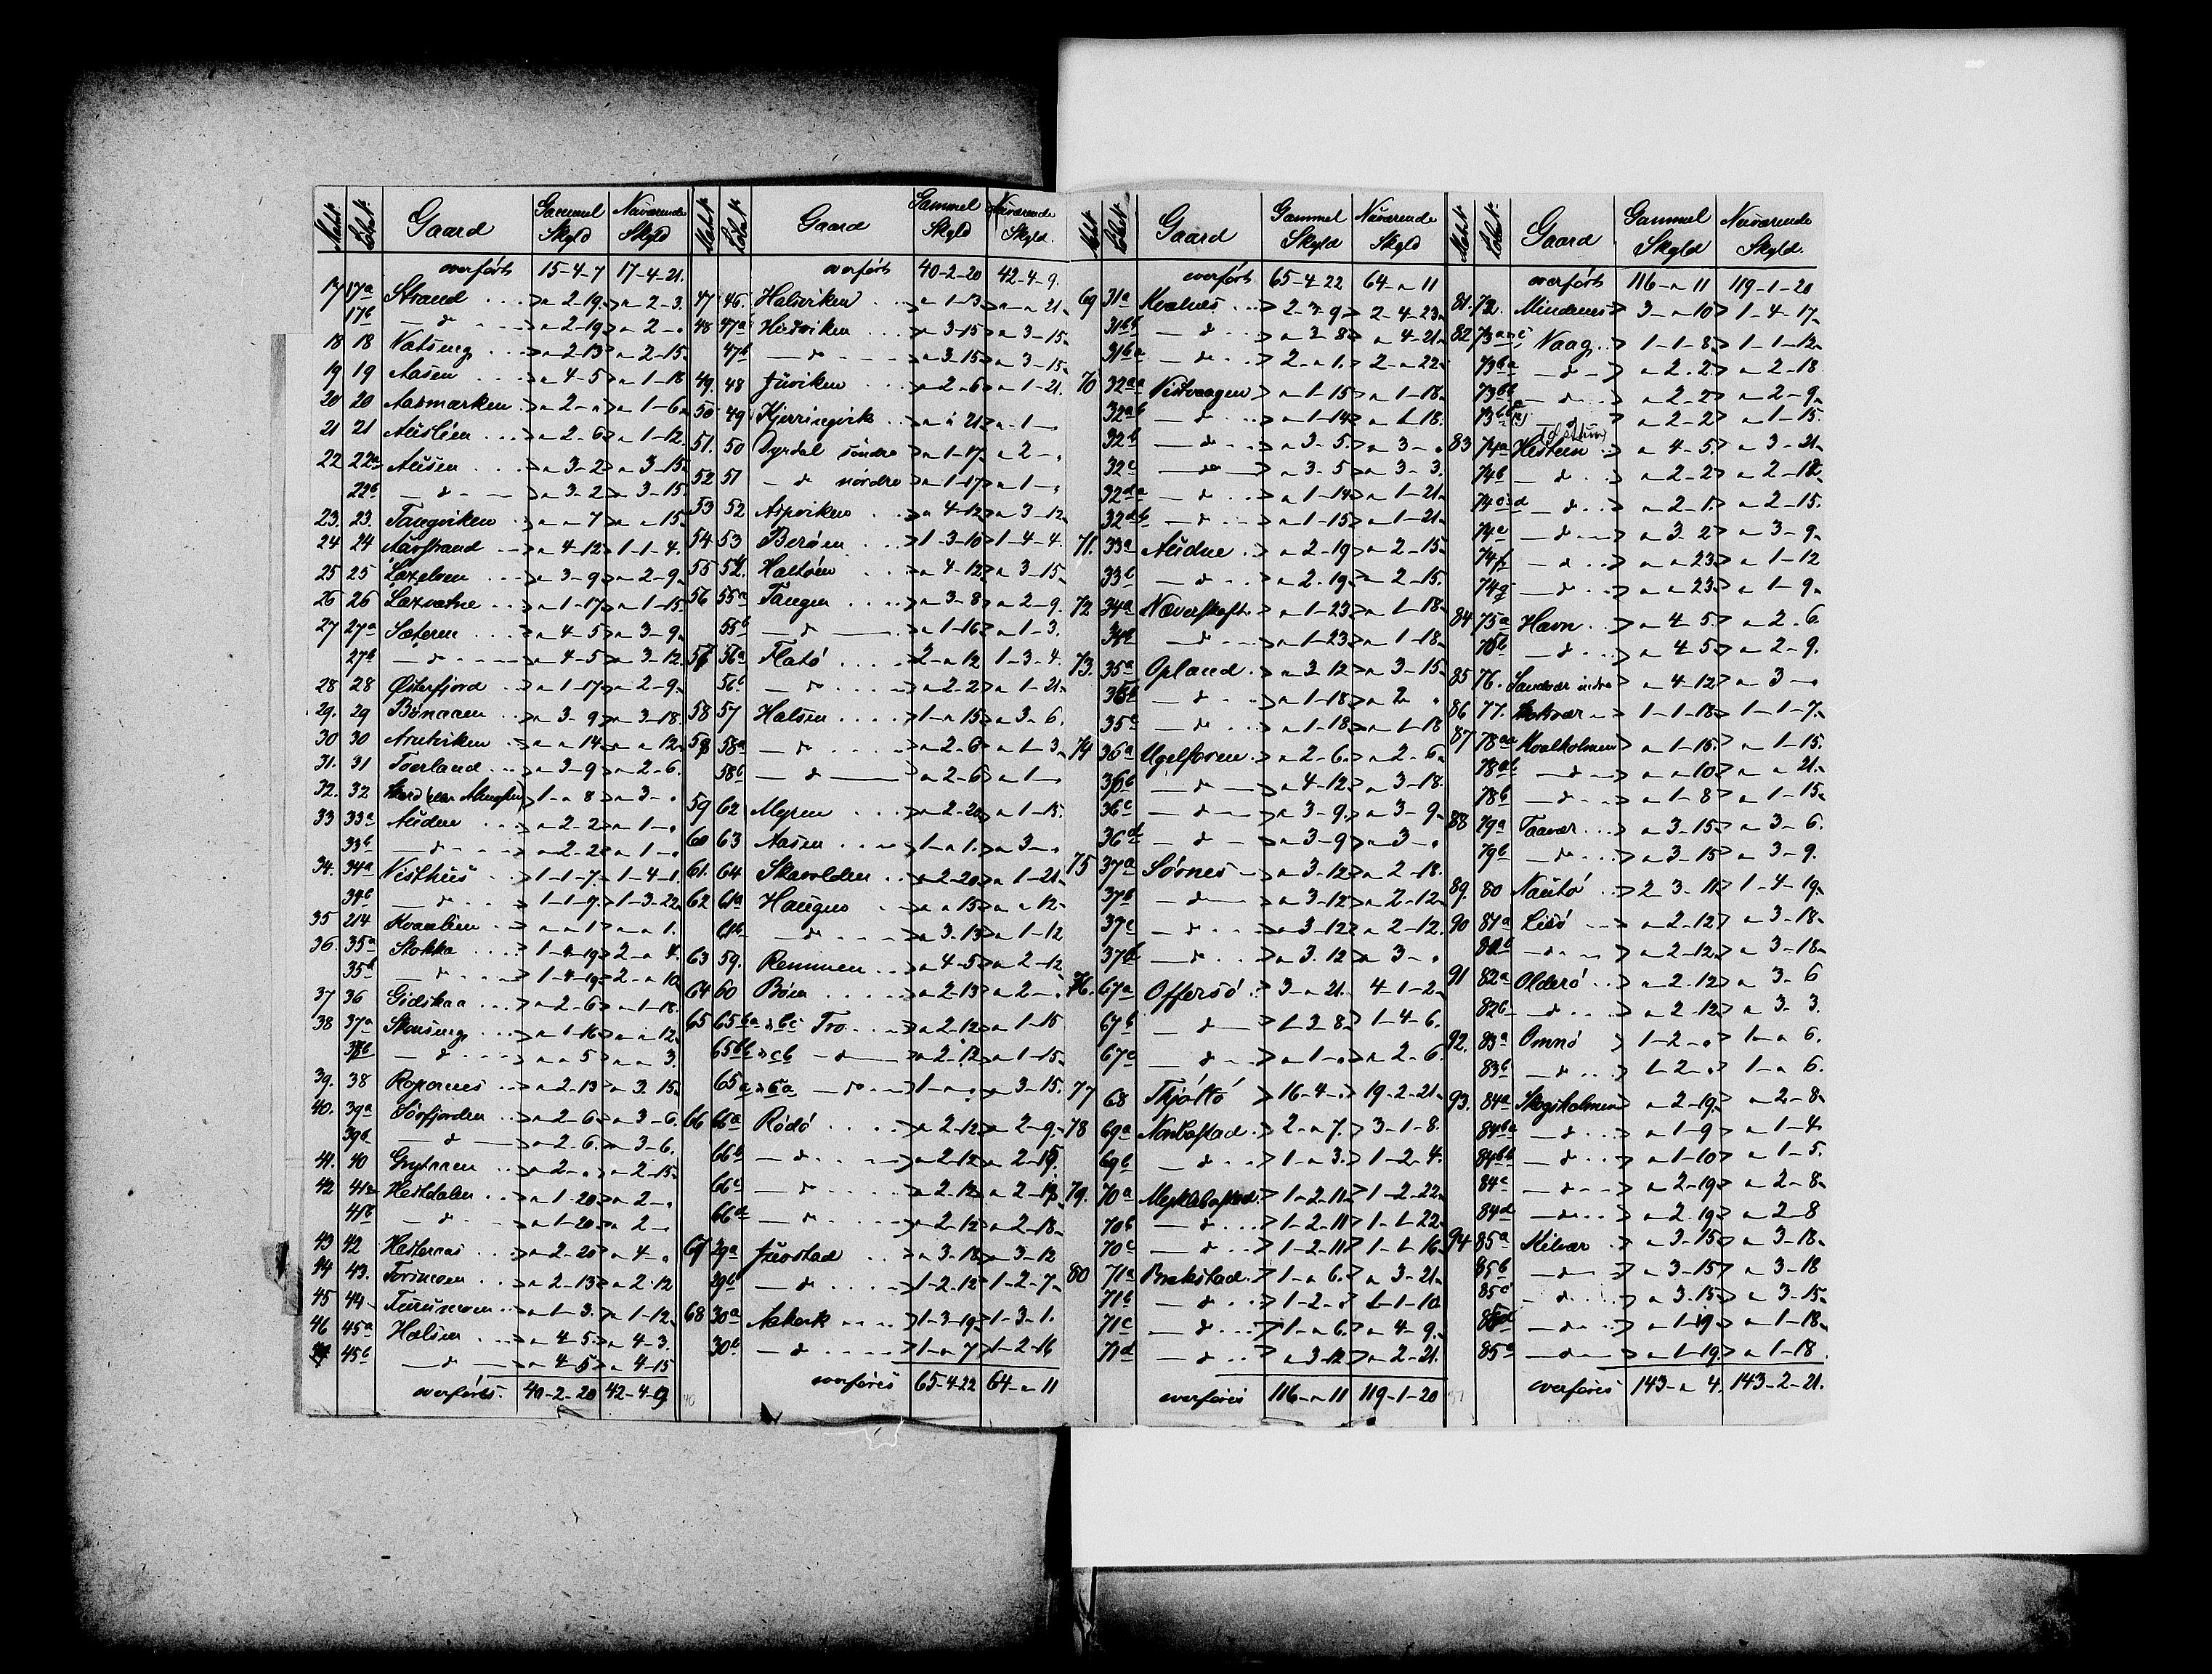 Matr. № Løbe № Gaard Gammel Skyld Nuværende Skyld
overført 15-4-7 17-4-21.
17 17a Strand ... " 2-19 " 2-3.
17b — d - " 2-19 " 2 - "
18 18 " 2-13 " 2-15
19 19 Aasen " 4-5 " 1-18
20 20 Aasmarken " 2 - " " 1-6
21 21 Auslien " 2-6 " 1-12.
22 22a Ausen " 3-2 " 3-15
22b — d - " 3-2 " 3-15
23. 23. Tangviken " " 7 " " 15
24 24 Aarstrand " 4-12 1-1-4.
25 25 Laxelven " 3-9 " 2-9
26 26 Laxvatne " 1-17 " 1-15
27 27a Sæteren " 4-5 " 3-9
27b — d - " 4-5 " 3-12
28 28 Østerfjord " 1-17 " 2-9
29. 29 Bønaaen " 3-9 " 3-18
30 30 " " 14 " " 12
31. 31 Toerland " 3-9 " 2-6.
32. 32 1 - " 8 " 3 - "
33 33a Audne " 2-2 " 1 - "
33b — d - " 2-2 " 1 - "
34. 34a Visthus 1-1-7 1-4-1
34b — d - 1-1-9 1-3-22
35 214 Kvaalien " " 1 " " 1.
36. 35a Stokka 1-4-19 2 - " 4.
35b — d - 1-4-19 2 - " 10
37 36 Gidskaa " 2-6 " 1-18
38 37a Skousung " 1-16 " " 12
37b — d - " " 5 " " 3
39. 38 Roparnes " 2-13 " 3-15
40. 39a Sørfjorden " 2-6 " 3-6
39b — d - " 2-6 " 3-6.
41. 40 Grytaaen " 2 - " " 2-15
42 41a Hestdalen " 1-20 " 2 - "
41b — d - " 1-20 " 2 -
43 42 Hesteraas " 2-20 " 4 - "
44 43. Forsmoen " 2-13 " 2-12
45 44 Furumoen " 1-3 " 1-12
46 45a Halsen " 4-5 " 4-3.
45b — d - " 4-5 " 4-15
overføres 40-2-20 42-4-9
Matr. № Løbe № Gaard Gammel Skyld Nuværende Skyld.
overført 40-2-20 42-4-9.
47 46. Halsviken " 1-3 " " 21
48 47a Husviken " 3-15 " 3-15
47b — d - " 3-15 " 3-15
49. 48 Juviken " 2-6 " 1-21.
50 49 Kjerringvik " " 21 " 1 -
51. 50 Dyrdal søndre " 1-17 " 2 - "
52 51 — d nordre " 1-17 " 1 - "
53 52 Aspviken " 4-12 " 3-12
54 53 Berøen 1-3-10 1-4-4.
55 54. Haltøen " 4-12 " 3-15
56 55a Tangen " 3-8 " 2-9.
55b — d - " 1-16 " 1-3.
57 56a Flatø 2 - " 12 1-3-4.
56b — d - " 2-2 " 1-21
58 57 Halsen 1 - " 15 " 3-6.
58 58a — d - " 2-6 " 1-3
58b — d - " 2-6 " 1 -
59 62 Myren " 2-20 " 1-15.
60 63 Aasen 1 - " 1. " 3 - "
61. 64 Skavolden " 2-20 " 1-21
62 61a Haugen " " 15 " " 12
61b — d - " 3-13 " 1-12
63 59. Remmen " 4-5 " 2-12
64 60 Bøen " 2-13 " 2 - "
65 65ba & bc Tro " 2-12 " 1-15
65bb & cb — d - " 2-12 " 1-15
65a & ca — d - 1 - " - " " 3-15.
66 66a Rødø " 2-12 " 2-9.
66b — d - " 2-12 " 2-15
66c — d - " 2-12 " 2-12
66d — d - " 2-12 " 2-18
67 29a Juvstad " 3-18 " 3-12
29b — d - 1-2-12 1-2-7
68 30a 1-3-19 1-3-1.
30b — d - 1 - " 7 1-2-16
overføres 65-4-22 64 - " 11
Matr. № Løbe № Gaard Gammel Skyld Nuværende Skyld
overført 65-4-22 64 - " 11
69 31a Kvalnes 2-3-9 2-4-23
31bb — d - " 3-8 " 4-21
31ba — d - 2 - " 1. 2 - " 22
70 32aa Vistvaagen " 1-15 " 1-18
32ab — d - " 1-14 " 1-18.
32b — d - " 3-5. " 3 - "
32c — d - " 3-5 " 3-3
32da — d - " 1-14 " 1-21
32db — d - " 1-15 " 1-21
71. 33a Audne " 2-19 " 2-15
33b — d - " 2-19 " 2-15
72 34a Næverskaft " 1-23 " 1-18
34b — d - " 1-23 " 1-18
73. 35a Opland " 3-12 " 3-15
35b — d - " 1-18 " 2 "
35c — d - " 1-18 " 1-18
74 36a Ugelstven " 2-6. " 2-6
36b — d - " 4-12 " 3-18.
36c — d - " 3-9. " 3-9
36d — d - " 3-9 " 3 - "
75 37a Sørnes " 3-12 " 2-18.
37b — d - " 3-12 " 2-12
37c — d - " 3-12 " 2-12.
37d — d - " 3-12 " 3 - "
76. 67a Offersø 3 - " 21. 4-1-2
67b — d - 1-3-8 1-4-6.
67c — d - " 1 - " " 2-6.
77 68 Thjøttø 16-4 - " 19-2-21
78 69a Nordbostad 2 - " 7. 3-1-8.
69b — d - 1 - " 3. 1-2-4.
79. 70a Myklebostad 1-2-11 1-2-22
70b — d - 1-2-11 1-1-22
70c — d - 1-2-11 1-1-16
80 71a Brækstad 1 - " 6. " 3-21
71b — d - 1-2 - " 1-1-10
71c — d - 1 - " 6. " 4-9.
71d — d - " 3-12 " 2-21.
overføres 116 - " 11 119-1-20
Matr. № Løbe № Gaard Gammel Skyld Nuværende Skyld.
overført 116 - " 11 119-1-20
81. 72. Mindnes 3 - " 10 1-4-17
82 73a&c Vaag 1-1-8 1-1-12
73ba — d - " 2-2 " 2-18
73bb — d - " 2-2 " 2-9
— d - " 2-2 " 1-15.
83 74a Hestun " 4-5. " 3-21
74b — d - " 2-2 " 2-12
74c&d — d - " 2-1. " 2-15.
74e — d - " 3-2 " 3-9
74f — d - " " 23 " 1-12
74g — d - " " 23 " 1-9
84 75a Havn " 4-5. " 2-6
75b — d - " 4-5 " 2-9.
85 76. Sandvær indre " 4-12 " 3 - "
86 77. 1-1-18 1-1-7.
87 78aa Kvalholmen " 1-15. " 1-15.
78ab — d - " " 10 " " 21.
78b — d - " 1-8 " 1-15
88 79a Taavær " 3-15 " 3-6.
79b — d - " 3-15 " 3-9.
89. 80 Nautø 2-3-11 1-4-19
90 81a Lisø " 2-12 " 3-18
81b — d - " 2-12 " 3-18
91 82a Olderø " 2-12 " 3-6
82b — d - " 2-12 " 3-3.
92. 83a Omnø 1-2 - " 1 - " 6.
83b — d - 1-2 - " 1 - " 6.
93. 84a Skogsholmen " 2-19 " 2-8
84ba — d - " 1-9 " 1-4
84bb — d - " 1-10 " 1-5.
84c — d - " 2-19 " 2-8
84d — d - " 2-19 " 2-8
94 85a Mibær " 3-15 " 3-18
85b — d - " 3-15 " 3-18
85c — d - " 3-15 " 3-15
85d — d - " 1-19 " 1-18
85e — d - " 1-19 " 1-18
overføres 143 - " 4. 143-2-21.